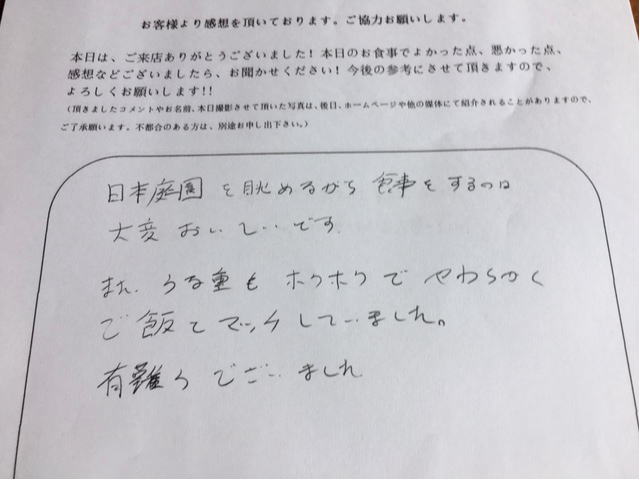 お客様より感想を頂いております。ご協力お願いします。
本日は、ご来店ありがとうございました！本日のお食事でよかった点、悪かった点、
感想などございましたら、お聞かせください！今後の参考にさせて頂きますので、
よろしくお願いします!!
（頂きましたコメントやお名前、本日撮影させて頂いた写真は、後日、ホームページや他の媒体にて紹介されることがありますので、
ご了承願います。不都合のある方は、別途お申し出下さい。）
日本庭園を眺めるがら食事をするのは
大変おいしいです
また、うな重もホクホクでやわらかく
ご飯とマッチしていました。
有難うございました